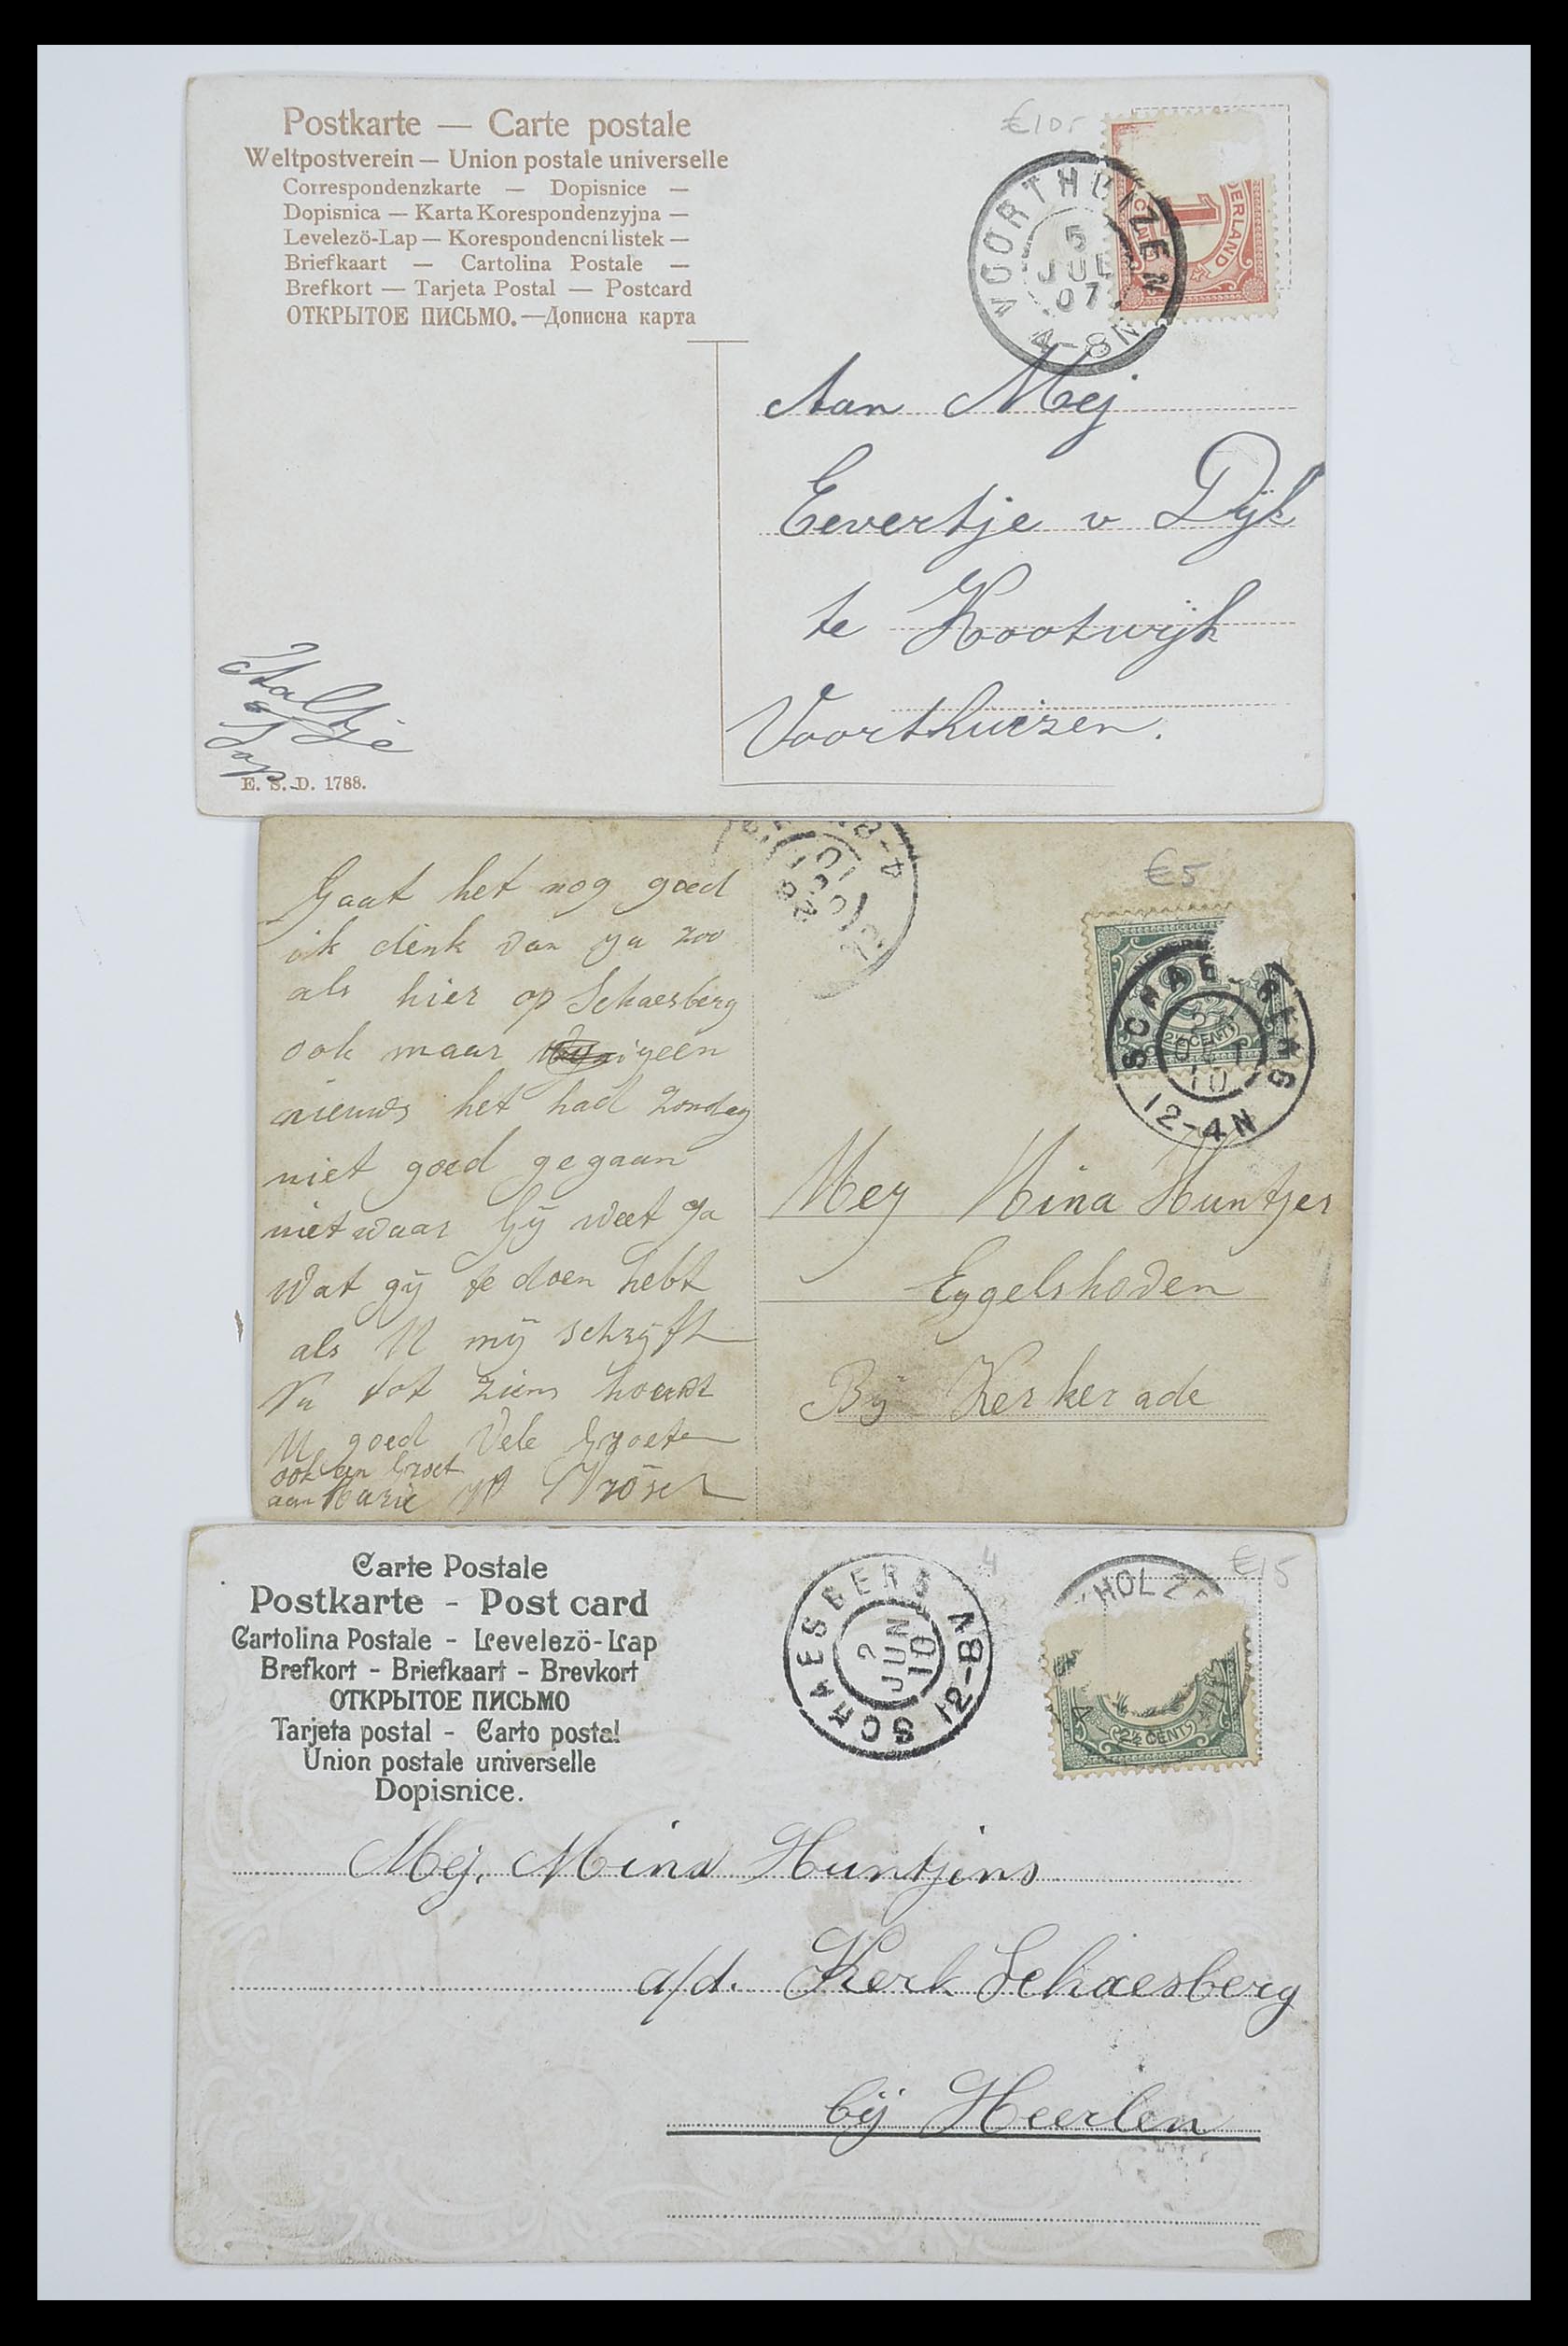 Postkarte — Carte postale
Weltpostverein — Union postale universelle
Correspondenzkarte — Dopisnice —
Dopisnica — Karta Korespondenzyjna —
Levelezö-Lap — Korespondencní listek —
Briefkaart — Cartolina Postale —
Brefkort — Tarjeta Postal — Postcard
ОТКРЫТОЕ ПИСЬМО. — Дописна карта
€10
VOORTHUIZEN
5
JUL
07
4-8N
1
Aan Mej
Eevertje v Dijk
te Kootwijk
Voorthuizen.
Aaltje
E. S. D. 1788.
Gaat het nog goed
ik denk van ja zoo
als hier op Schaesberg
ook maar geen
nieuws het had Zondag
niet goed gegaan
niet waar Gij weet ja
wat gij te doen hebt
als U mij schrijft
Nu tot ziens houdt
U goed Vele Groeten
ook een Groet
aan Marie
€5
2½ CENT
SCHAESBERG
OCT
10
12-4N
Mej Mina Huntjes
Eygelshoven
Bij Kerkerade
Carte Postale
Postkarte - Post card
Cartolina Postale - Levelezö-Lap
Brefkort - Briefkaart - Brevkort
ОТКРЫТОЕ ПИСЬМО
Tarjeta postal - Carto postal
Union postale universelle
Dopisnice.
SCHAESBERG
2
JUN
10
12-8N
4
€15
HOLZ
2½ CENT
Mej. Mina Huntjens
a/d. Kerk Schaesberg
bij Heerlen